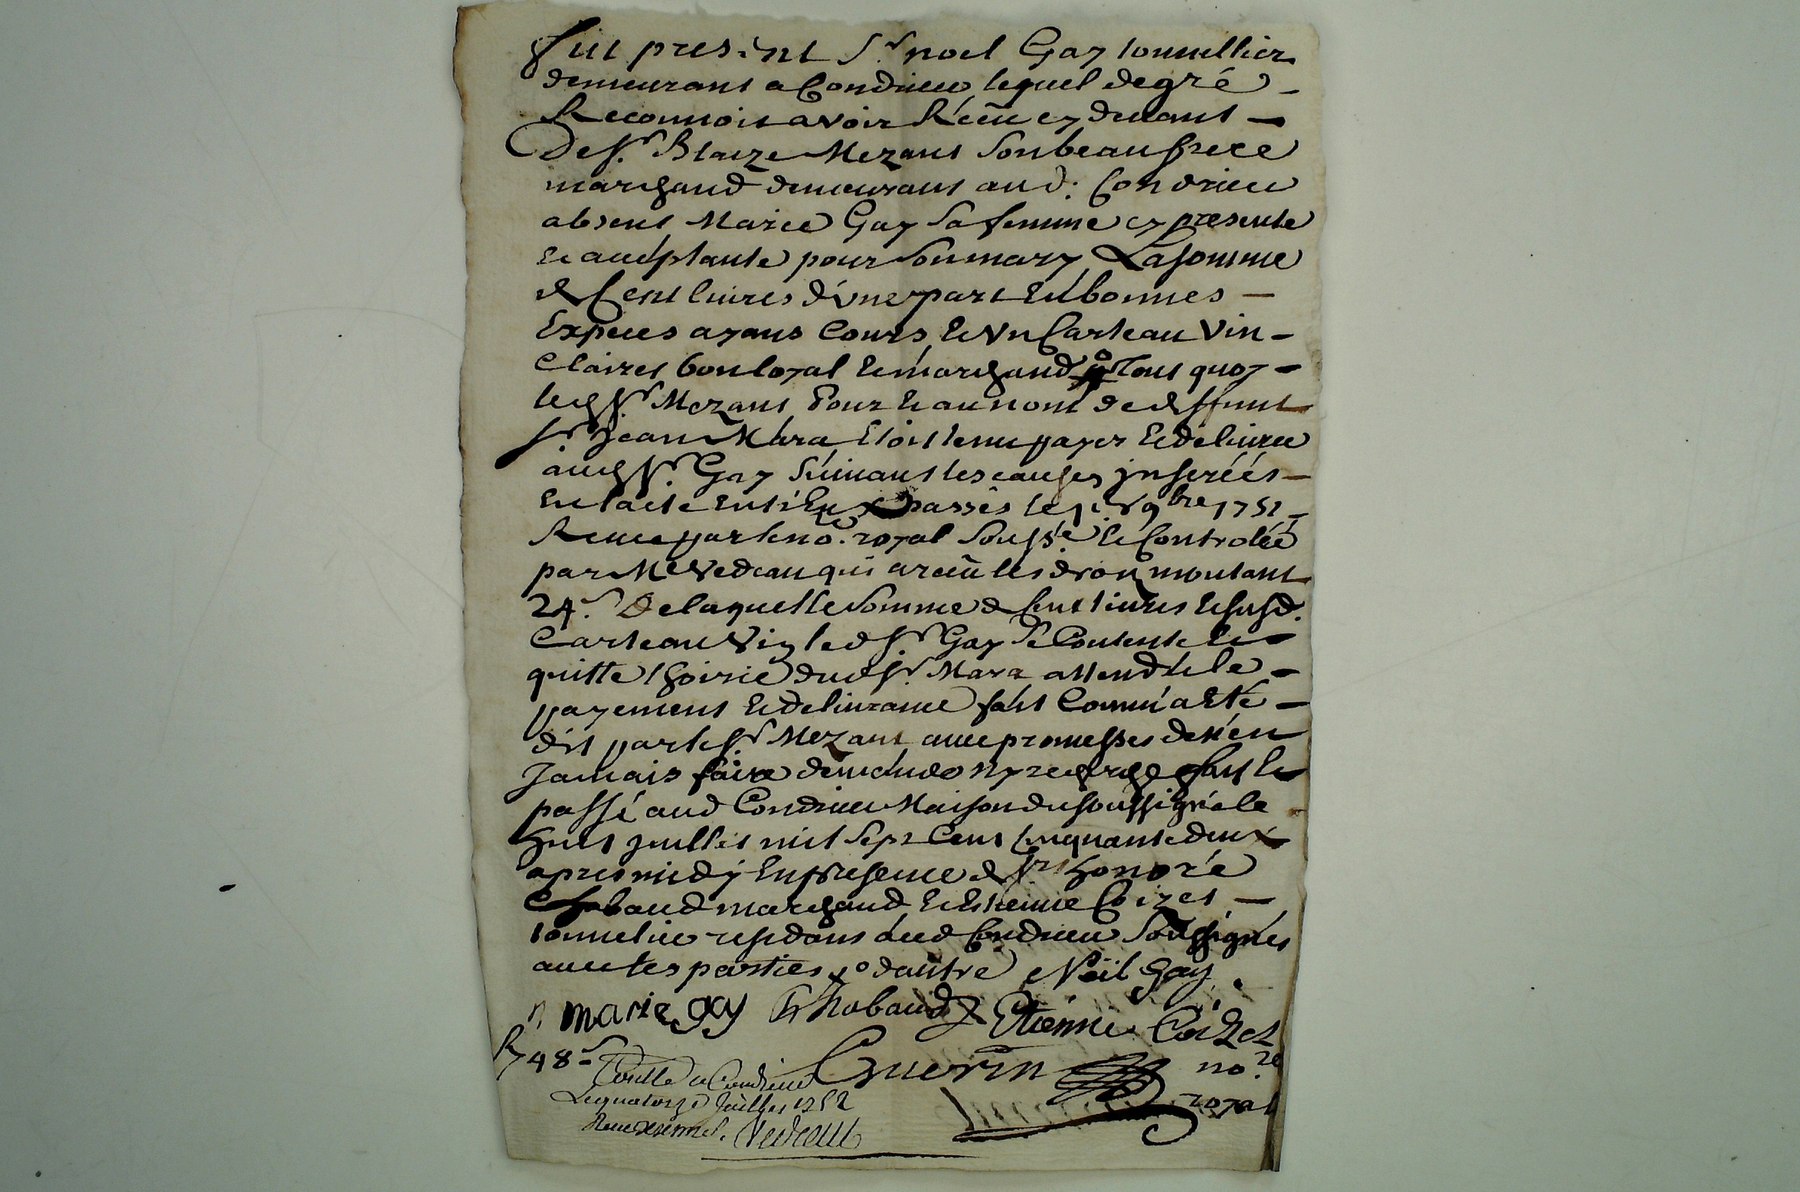 fut present Sr noel Gay tonnellier
demeurant a Condrieu lequel de gré
Reconnoit avoir Réceu cy devant
De Sr. Blaize Mezant son beau frere
marchand demeurant aud. Condrieu
absent Marie Gay sa femme cy presente
et acceptante pour son mary La somme
de Cent livres d'une part En bonnes
Especes ayant Cours, et Un Carteau Vin
Clairet bon loyal et marchand Tout quoy
led Sr. Mezant Pour et au nom de deffunt
sr Jean Mara Etoit tenu payer Et delivrer
aud Sr. Gay suivant les causes jnserées
En l'acte Entr'Eux passés le 9bre 1751
Receu par le no.re royal soussé. et Controllé
par Me Vedeau qui a receu les droits montant
24s. De laquelle somme de Cent livres Et susd.
Carteau Vin led Sr Gay se Contente Et
quitte l'hoirie dud Sr. Mara attendu le
payement Et delivrance fait Comm'a Eté
dit par le Sr Mezant avec promesses de n'en
Jamais faire demande ny recherche fait Et
passé aud Condrieu Maison du soussigné le
huit juillet mil sept Cent Cinquante deux
apres midy En presence de Srs Honoré
Chabaud marchand et Etienne Coizet
tonnelier residans aud Condrieu soussignés
avec les parties d'autre Noël Gay
marie gay Chabaud Etienne Coizet
R 48s Guerin no.re
Contlé a Condrieu royal
Le quatorze Juillet 1752
Vedeau